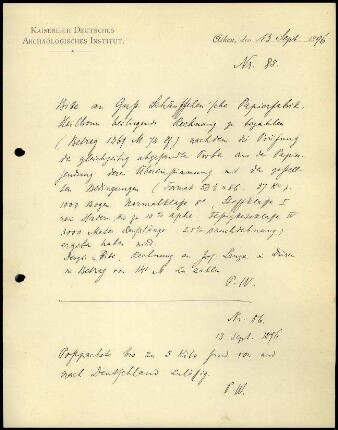 KAISERLICH DEUTSCHES
ARCHÄOLOGISCHES INSTITUT.
Athen, den 13. Sept. 1896
Nr. 85.
Bitte an Gust. Schäuffelen'sche Papierfabrik
Heilbronn beiliegende Rechnung zu bezahlen
(Betrag 1369 M. 74 Pf.) nachdem die Prüfung
der gleichzeitig abgesandten Probe aus der Papier-
sendung deren Übereinstimmung mit den gestell-
ten Bedingungen (Format
1000 Bogen, Normalklasse Stoffklasse I
bis zu 10 % Asche. Festigkeitsklasse IV
3000 Meter Reißlänge 2,5 % Bruchdehnung)
ergeben haben wird.
Desgl. Bitte, Rechnung an in Düren
im Betrag von M. zu zahlen
P. W.
Nr. 86.
13 Sept. 1896
Postpackete bis zu 5 Kilo sind von und
nach Deutschland zulässig.
P. W.